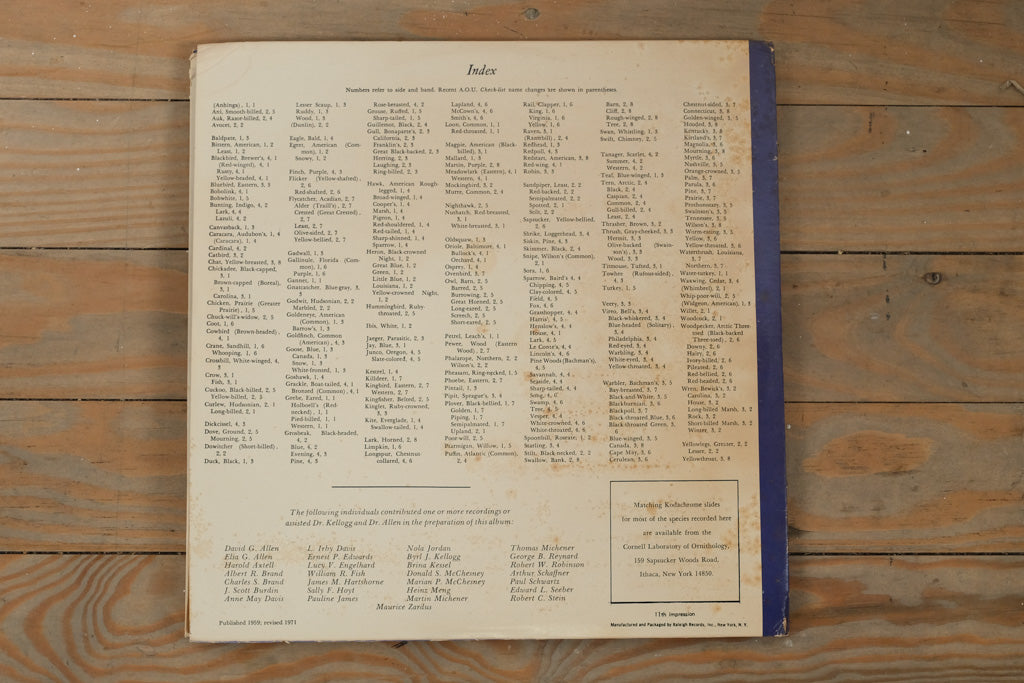 Index
Numbers refer to side and band. Recent A.O.U. Check-list name changes are shown in parentheses.
(Anhinga), 1, 1
Ani, Smooth-billed, 2, 5
Auk, Razor-billed, 2, 4
Avocet, 2, 2
Baldpate, 1, 3
Bittern, American, 1, 2
Least, 1, 2
Blackbird, Brewer's, 4, 1
(Red-winged), 4, 1
Rusty, 4, 1
Yellow-headed, 4, 1
Bluebird, Eastern, 3, 3
Bobolink, 4, 1
Bobwhite, 1, 5
Bunting, Indigo, 4, 2
Lark, 4, 4
Lazuli, 4, 2
Canvasback, 1, 3
Caracara, Audubon's, 1, 4
(Caracara), 1, 4
Cardinal, 4, 2
Catbird, 3, 2
Chat, Yellow-breasted, 3, 8
Chickadee, Black-capped,
3, 1
Brown-capped (Boreal),
3, 1
Carolina, 3, 1
Chicken, Prairie (Greater
Prairie), 1, 5
Chuck-will's-widow, 2, 5
Coot, 1, 6
Cowbird (Brown-headed),
4, 1
Crane, Sandhill, 1, 6
Whooping, 1, 6
Crossbill, White-winged, 4,
3
Crow, 3, 1
Fish, 3, 1
Cuckoo, Black-billed, 2, 5
Yellow-billed, 2, 5
Curlew, Hudsonian, 2, 1
Long-billed, 2, 1
Dickcissel, 4, 3
Dove, Ground, 2, 5
Mourning, 2, 5
Dowitcher (Short-billed),
2, 2
Duck, Black, 1, 3
Lesser Scaup, 1, 3
Ruddy, 1, 3
Wood, 1, 3
(Dunlin), 2, 2
Eagle, Bald, 1, 4
Egret, American (Com-
mon), 1, 2
Snowy, 1, 2
Finch, Purple, 4, 3
Flicker (Yellow-shafted),
2, 6
Red-shafted, 2, 6
Flycatcher, Acadian, 2, 7
Alder (Traill's), 2, 7
Crested (Great Crested),
2, 7
Least, 2, 7
Olive-sided, 2, 7
Yellow-bellied, 2, 7
Gadwall, 1, 3
Gallinule, Florida (Com-
mon), 1, 6
Purple, 1, 6
Gannet, 1, 1
Gnatcatcher, Blue-gray, 3,
3
Godwit, Hudsonian, 2, 2
Marbled, 2, 2
Goldeneye, American
(Common), 1, 3
Barrow's, 1, 3
Goldfinch, Common
(American), 4, 3
Goose, Blue, 1, 3
Canada, 1, 3
Snow, 1, 3
White-fronted, 1, 3
Goshawk, 1, 4
Grackle, Boat-tailed, 4, 1
Bronzed (Common), 4, 1
Grebe, Eared, 1, 1
Holboell's (Red-
necked), 1, 1
Pied-billed, 1, 1
Western, 1, 1
Grosbeak, Black-headed,
4, 2
Blue, 4, 2
Evening, 4, 3
Pine, 4, 3
Rose-breasted, 4, 2
Grouse, Ruffed, 1, 5
Sharp-tailed, 1, 5
Guillemot, Black, 2, 4
Gull, Bonaparte's, 2, 3
California, 2, 3
Franklin's, 2, 3
Great Black-backed, 2, 3
Herring, 2, 3
Laughing, 2, 3
Ring-billed, 2, 3
Hawk, American Rough-
legged, 1, 4
Broad-winged, 1, 4
Cooper's, 1, 4
Marsh, 1, 4
Pigeon, 1, 4
Red-shouldered, 1, 4
Red-tailed, 1, 4
Sharp-shinned, 1, 4
Sparrow, 1, 4
Heron, Black-crowned
Night, 1, 2
Great Blue, 1, 2
Green, 1, 2
Little Blue, 1, 2
Louisiana, 1, 2
Yellow-crowned Night,
1, 2
Hummingbird, Ruby-
throated, 2, 5
Ibis, White, 1, 2
Jaeger, Parasitic, 2, 3
Jay, Blue, 3, 1
Junco, Oregon, 4, 5
Slate-colored, 4, 5
Kestrel, 1, 4
Killdeer, 1, 7
Kingbird, Eastern, 2, 7
Western, 2, 7
Kingfisher, Belted, 2, 5
Kinglet, Ruby-crowned,
3, 3
Kite, Everglade, 1, 4
Swallow-tailed, 1, 4
Lark, Horned, 2, 8
Limpkin, 1, 6
Longspur, Chestnut
collared, 4, 6
Lapland, 4, 6
McCown's, 4, 6
Smith's, 4, 6
Loon, Common, 1, 1
Red-throated, 1, 1
Magpie, American (Black-
billed), 3, 1
Mallard, 1, 3
Martin, Purple, 2, 8
Meadowlark (Eastern), 4, 1
Western, 4, 1
Mockingbird, 3, 2
Murre, Common, 2, 4
Nighthawk, 2, 5
Nuthatch, Red-breasted,
3, 1
White-breasted, 3, 1
Oldsquaw, 1, 3
Oriole, Baltimore, 4, 1
Bullock's, 4, 1
Orchard, 4, 1
Osprey, 1, 4
Ovenbird, 3, 7
Owl, Barn, 2, 5
Barred, 2, 5
Burrowing, 2, 5
Great Horned, 2, 5
Long-eared, 2, 5
Screech, 2, 5
Short-eared, 2, 5
Petrel, Leach's, 1, 1
Pewee, Wood (Eastern
Wood), 2, 7
Phalarope, Northern, 2, 2
Wilson's, 2, 2
Pheasant, Ring-necked, 1, 5
Phoebe, Eastern, 2, 7
Pintail, 1, 3
Pipit, Sprague's, 3, 4
Plover, Black-bellied, 1, 7
Golden, 1, 7
Piping, 1, 7
Semipalmated, 1, 7
Upland, 2, 1
Poor-will, 2, 5
Ptarmigan, Willow, 1, 5
Puffin, Atlantic (Common),
2, 4
Rail, Clapper, 1, 6
King, 1, 6
Virginia, 1, 6
Yellow, 1, 6
Raven, 3, 1
(Razorbill), 2, 4
Redhead, 1, 3
Redpoll, 4, 3
Redstart, American, 3, 8
Red-wing, 4, 1
Robin, 3, 3
Sandpiper, Least, 2, 2
Red-backed, 2, 2
Semipalmated, 2, 2
Spotted, 2, 1
Stilt, 2, 2
Sapsucker, Yellow-bellied,
2, 6
Shrike, Loggerhead, 3, 4
Siskin, Pine, 4, 3
Skimmer, Black, 2, 4
Snipe, Wilson's (Common),
2, 1
Sora, 1, 6
Sparrow, Baird's, 4, 4
Chipping, 4, 5
Clay-colored, 4, 5
Field, 4, 5
Fox, 4, 6
Grasshopper, 4, 4
Harris', 4, 5
Henslow's, 4, 4
House, 4, 1
Lark, 4, 5
Le Conte's, 4, 4
Lincoln's, 4, 6
Pine Woods (Bachman's),
4, 5
Savannah, 4, 4
Seaside, 4, 4
Sharp-tailed, 4, 4
Song, 4, 6
Swamp, 4, 6
Tree, 4, 5
Vesper, 4, 4
White-crowned, 4, 6
White-throated, 4, 6
Spoonbill, Roseate, 1, 2
Starling, 3, 4
Stilt, Black-necked, 2, 2
Swallow, Bank, 2, 8
Barn, 2, 8
Cliff, 2, 8
Rough-winged, 2, 8
Tree, 2, 8
Swan, Whistling, 1, 3
Swift, Chimney, 2, 5
Tanager, Scarlet, 4, 2
Summer, 4, 2
Western, 4, 2
Teal, Blue-winged, 1, 3
Tern, Arctic, 2, 4
Black, 2, 4
Caspian, 2, 4
Common, 2, 4
Gull-billed, 2, 4
Least, 2, 4
Thrasher, Brown, 3, 2
Thrush, Gray-cheeked, 3, 3
Hermit, 3, 3
Olive-backed (Swain-
son's), 3, 3
Wood, 3, 3
Titmouse, Tufted, 3, 1
Towhee (Rufous-sided),
4, 3
Turkey, 1, 5
Veery, 3, 3
Vireo, Bell's, 3, 4
Black-whiskered, 3, 4
Blue-headed (Solitary),
3, 4
Philadelphia, 3, 4
Red-eyed, 3, 4
Warbling, 3, 4
White-eyed, 3, 4
Yellow-throated, 3, 4
Warbler, Bachman's, 3, 5
Bay-breasted, 3, 7
Black-and-White, 3, 5
Blackburnian, 3, 6
Blackpoll, 3, 7
Black-throated Blue, 3, 6
Black-throated Green, 3,
6
Blue-winged, 3, 5
Canada, 3, 8
Cape May, 3, 6
Cerulean, 3, 6
Chestnut-sided, 3, 7
Connecticut, 3, 8
Golden-winged, 3, 5
Hooded, 3, 8
Kentucky, 3, 8
Kirtland's, 3, 7
Magnolia, 3, 6
Mourning, 3, 8
Myrtle, 3, 6
Nashville, 3, 5
Orange-crowned, 3, 5
Palm, 3, 7
Parula, 3, 6
Pine, 3, 7
Prairie, 3, 7
Prothonotary, 3, 5
Swainson's, 3, 5
Tennessee, 3, 5
Wilson's, 3, 8
Worm-eating, 3, 5
Yellow, 3, 6
Yellow-throated, 3, 6
Waterthrush, Louisiana,
3, 7
Northern, 3, 7
Water-turkey, 1, 1
Waxwing, Cedar, 3, 4
(Whimbrel), 2, 1
Whip-poor-will, 2, 5
(Widgeon, American), 1, 3
Willet, 2, 1
Woodcock, 2, 1
Woodpecker, Arctic Three-
toed (Black-backed
Three-toed), 2, 6
Downy, 2, 6
Hairy, 2, 6
Ivory-billed, 2, 6
Pileated, 2, 6
Red-bellied, 2, 6
Red-headed, 2, 6
Wren, Bewick's, 3, 2
Carolina, 3, 2
House, 3, 2
Long-billed Marsh, 3, 2
Rock, 3, 2
Short-billed Marsh, 3, 2
Winter, 3, 2
Yellowlegs, Greater, 2, 2
Lesser, 2, 2
Yellowthroat, 3, 8
The following individuals contributed one or more recordings or
assisted Dr. Kellogg and Dr. Allen in the preparation of this album:
David G. Allen
Elsa G. Allen
Harold Axtell
Albert R. Brand
Charles S. Brand
J. Scott Burdin
Anne May Davis
L. Irby Davis
Ernest P. Edwards
Lucy V. Engelhard
William R. Fish
James M. Hartshorne
Sally F. Hoyt
Pauline James
Nola Jordan
Byrl J. Kellogg
Brina Kessel
Donald S. McChesney
Marian P. McChesney
Heinz Meng
Martin Michener
Thomas Michener
George B. Reynard
Robert W. Robinson
Arthur Schaffner
Paul Schwartz
Edward L. Seeber
Robert C. Stein
Maurice Zardus
Matching Kodachrome slides
for most of the species recorded here
are available from the
Cornell Laboratory of Ornithology,
159 Sapsucker Woods Road,
Ithaca, New York 14850.
Published 1959; revised 1971
11th impression
Manufactured and Packaged by Raleigh Records, Inc., New York, N. Y.